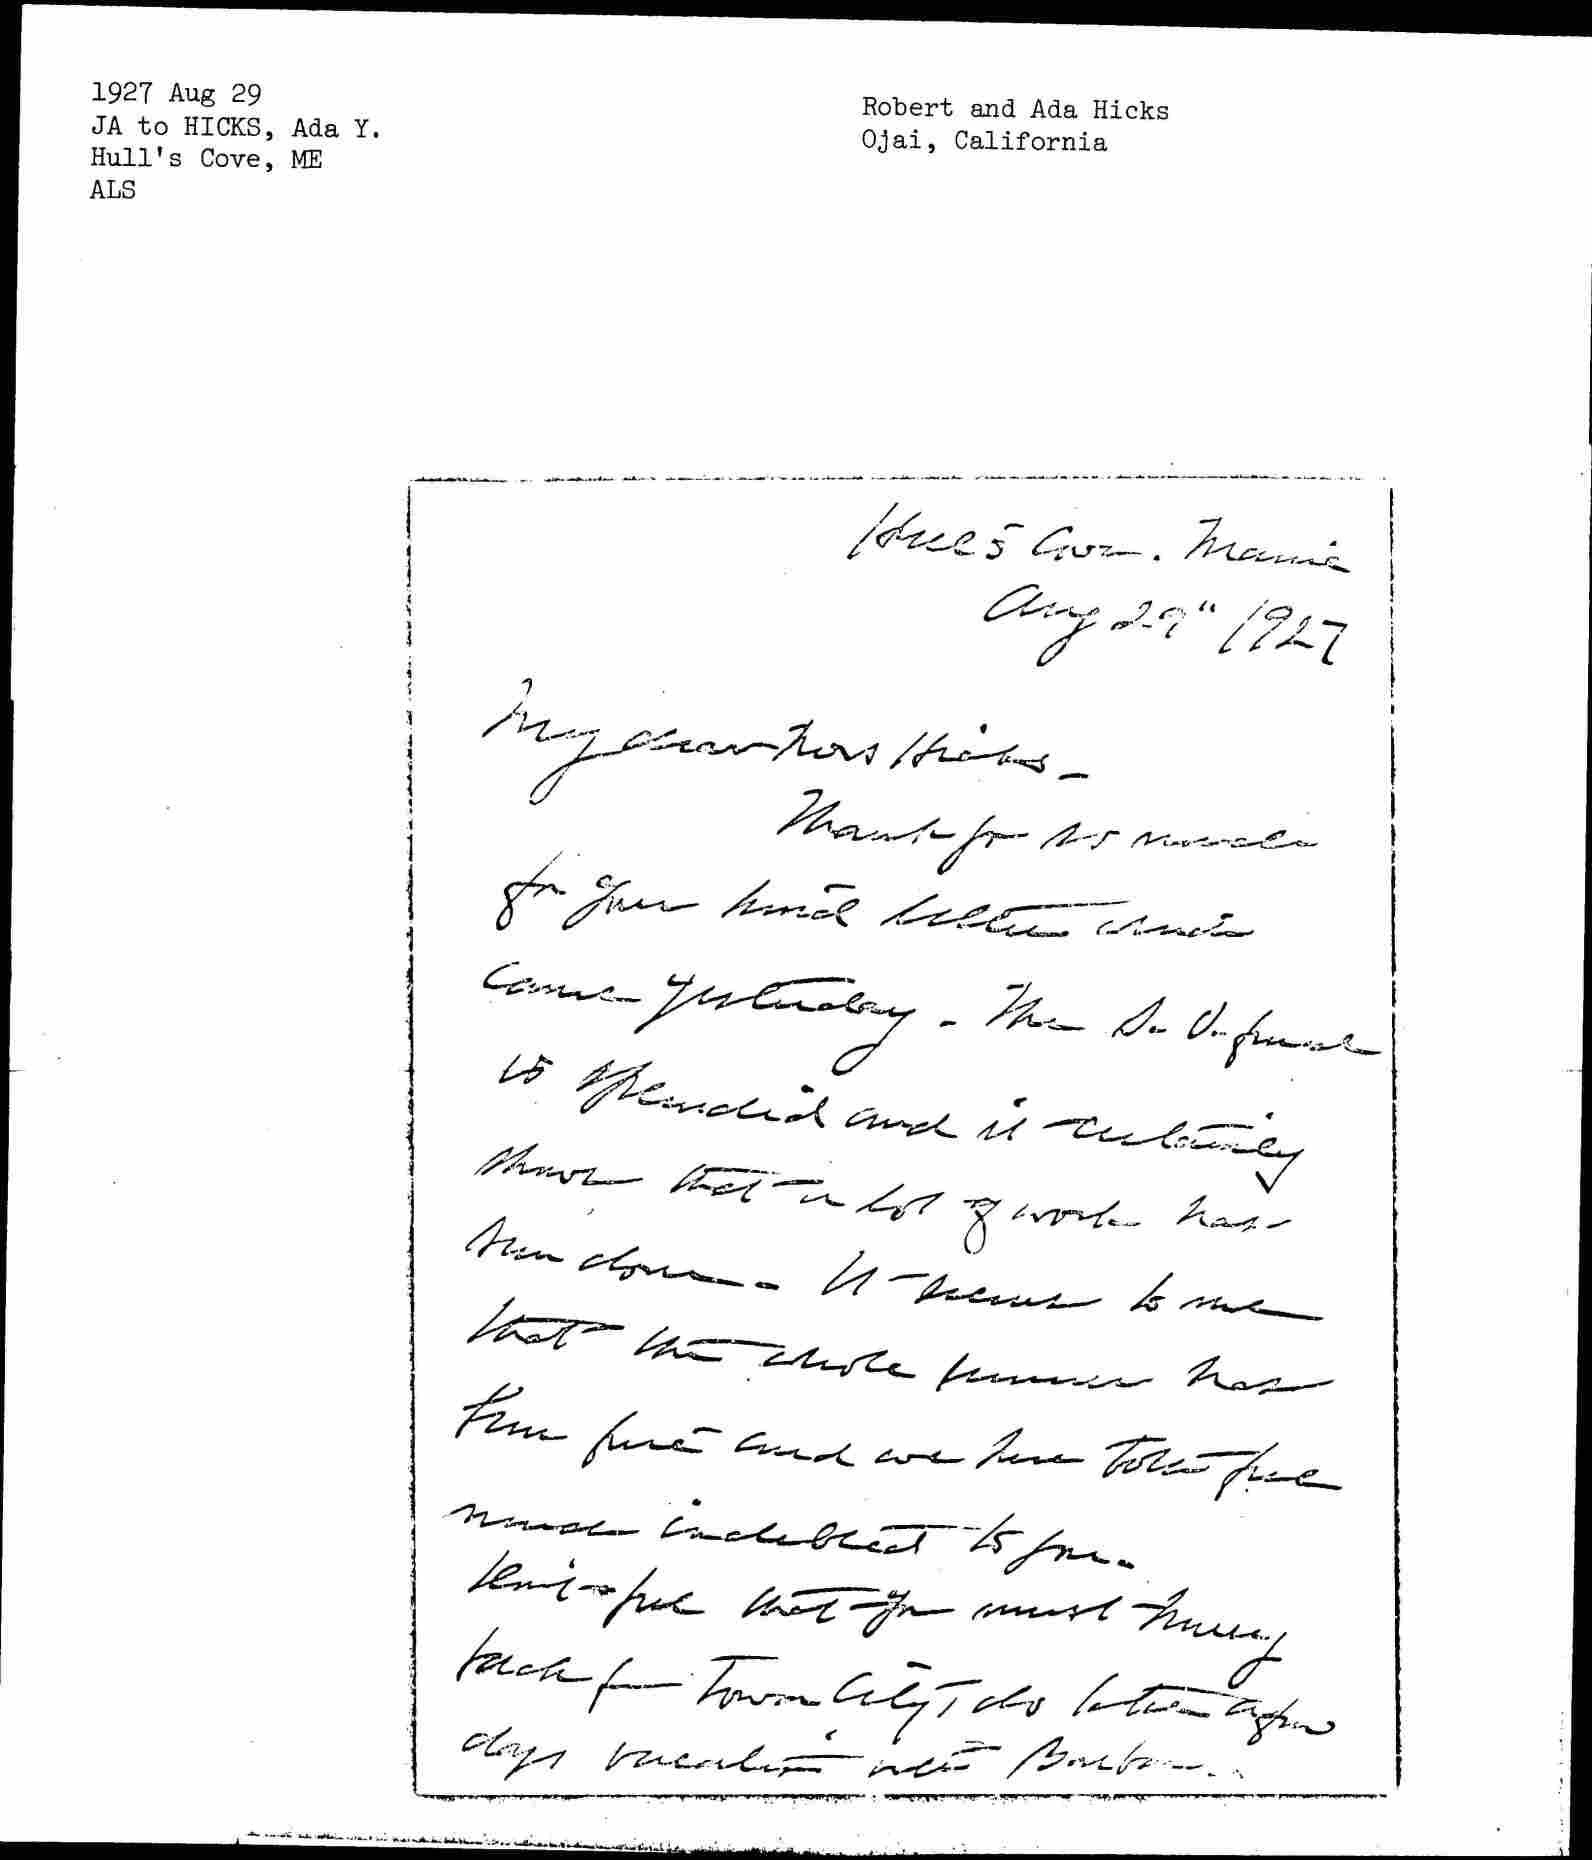 1927 Aug 29
JA to HICKS, Ada Y.
Hull's Cove, ME
ALS
Robert and Ada Hicks
Ojai, California
Hull's Cove. Maine
Aug 29" 1927
My dear Mrs Hicks -
Thank you so much
for your kind letter which
came yesterday - The S. O. fund
is splendid and it certainly
shows that a lot of work has
been done - It seems to me
that the whole summer has
been fine and we here both feel
much indebted to you.
Don't feel that you must hurry
back for Town City, do take a few
days vacation with